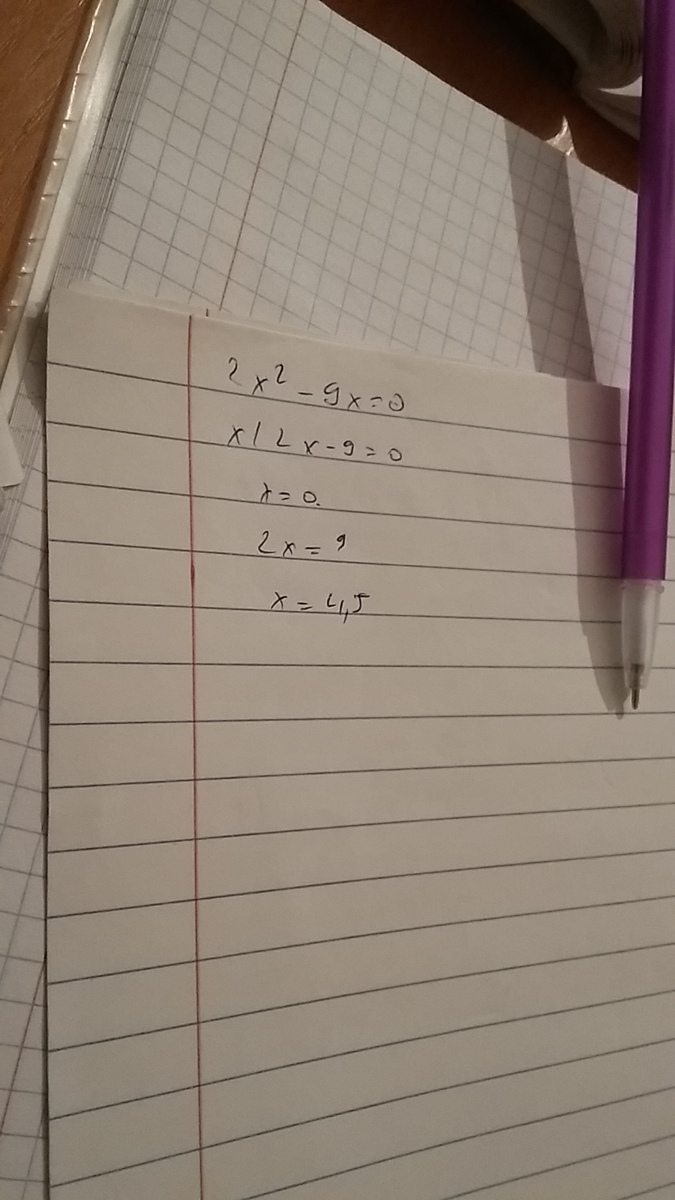 2x² - 9x = 0
x(2x - 9 = 0
x = 0.
2x = 9
x = 4,5